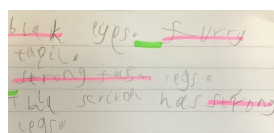 blak eyes. fursy
taqil.
strong fas. legs.
The scrion has strong
legso